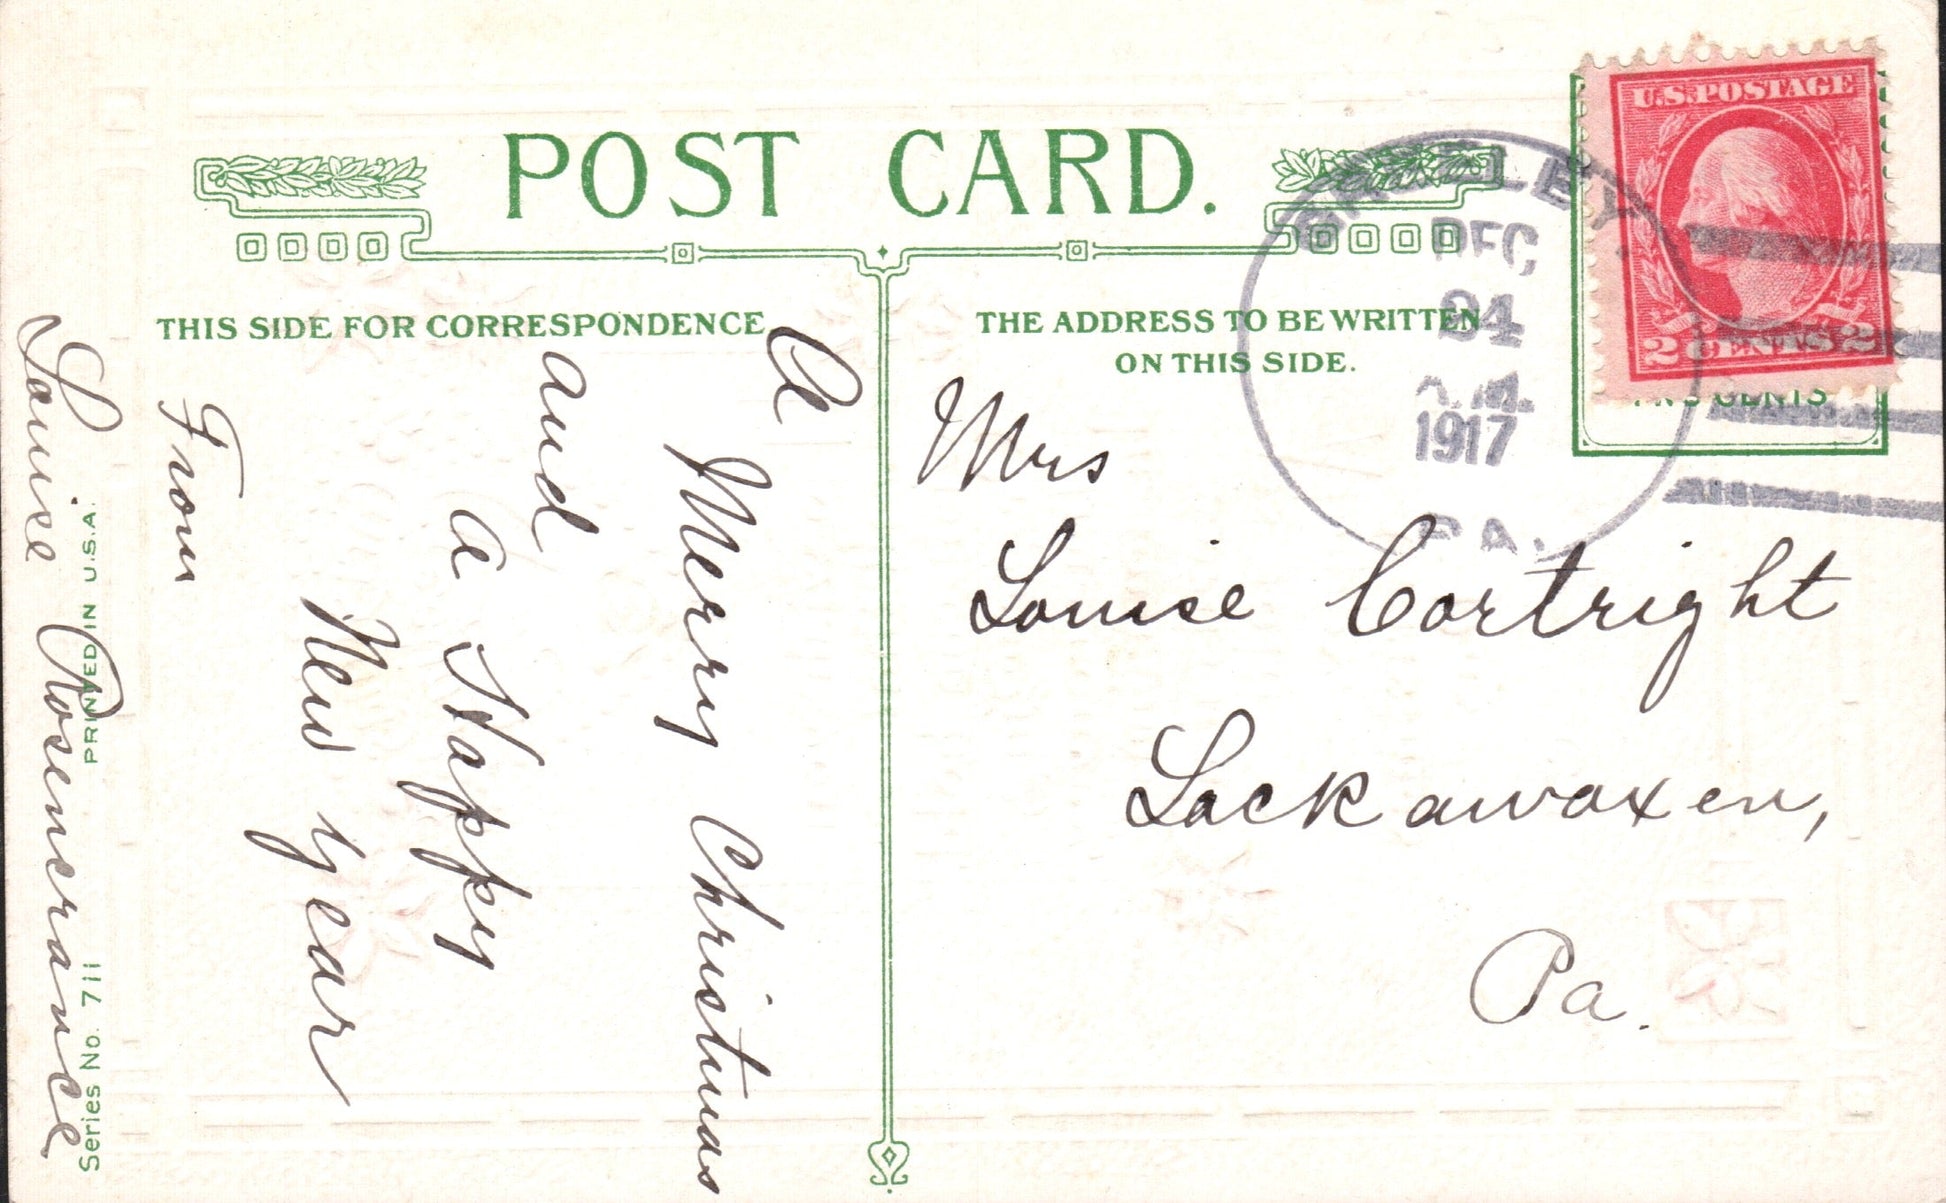 POST CARD.
THIS SIDE FOR CORRESPONDENCE
THE ADDRESS TO BE WRITTEN
ON THIS SIDE.
U.S. POSTAGE
2 CENTS 2
CENTS
DEC
24
A.M.
1917
PA.
Mrs
Louise Cortright
Lackawaxen,
Pa.
A
Merry Christmas
and
a Happy
New Year
From
Louise Rosencrance
PRINTED IN U.S.A.
Series No. 711